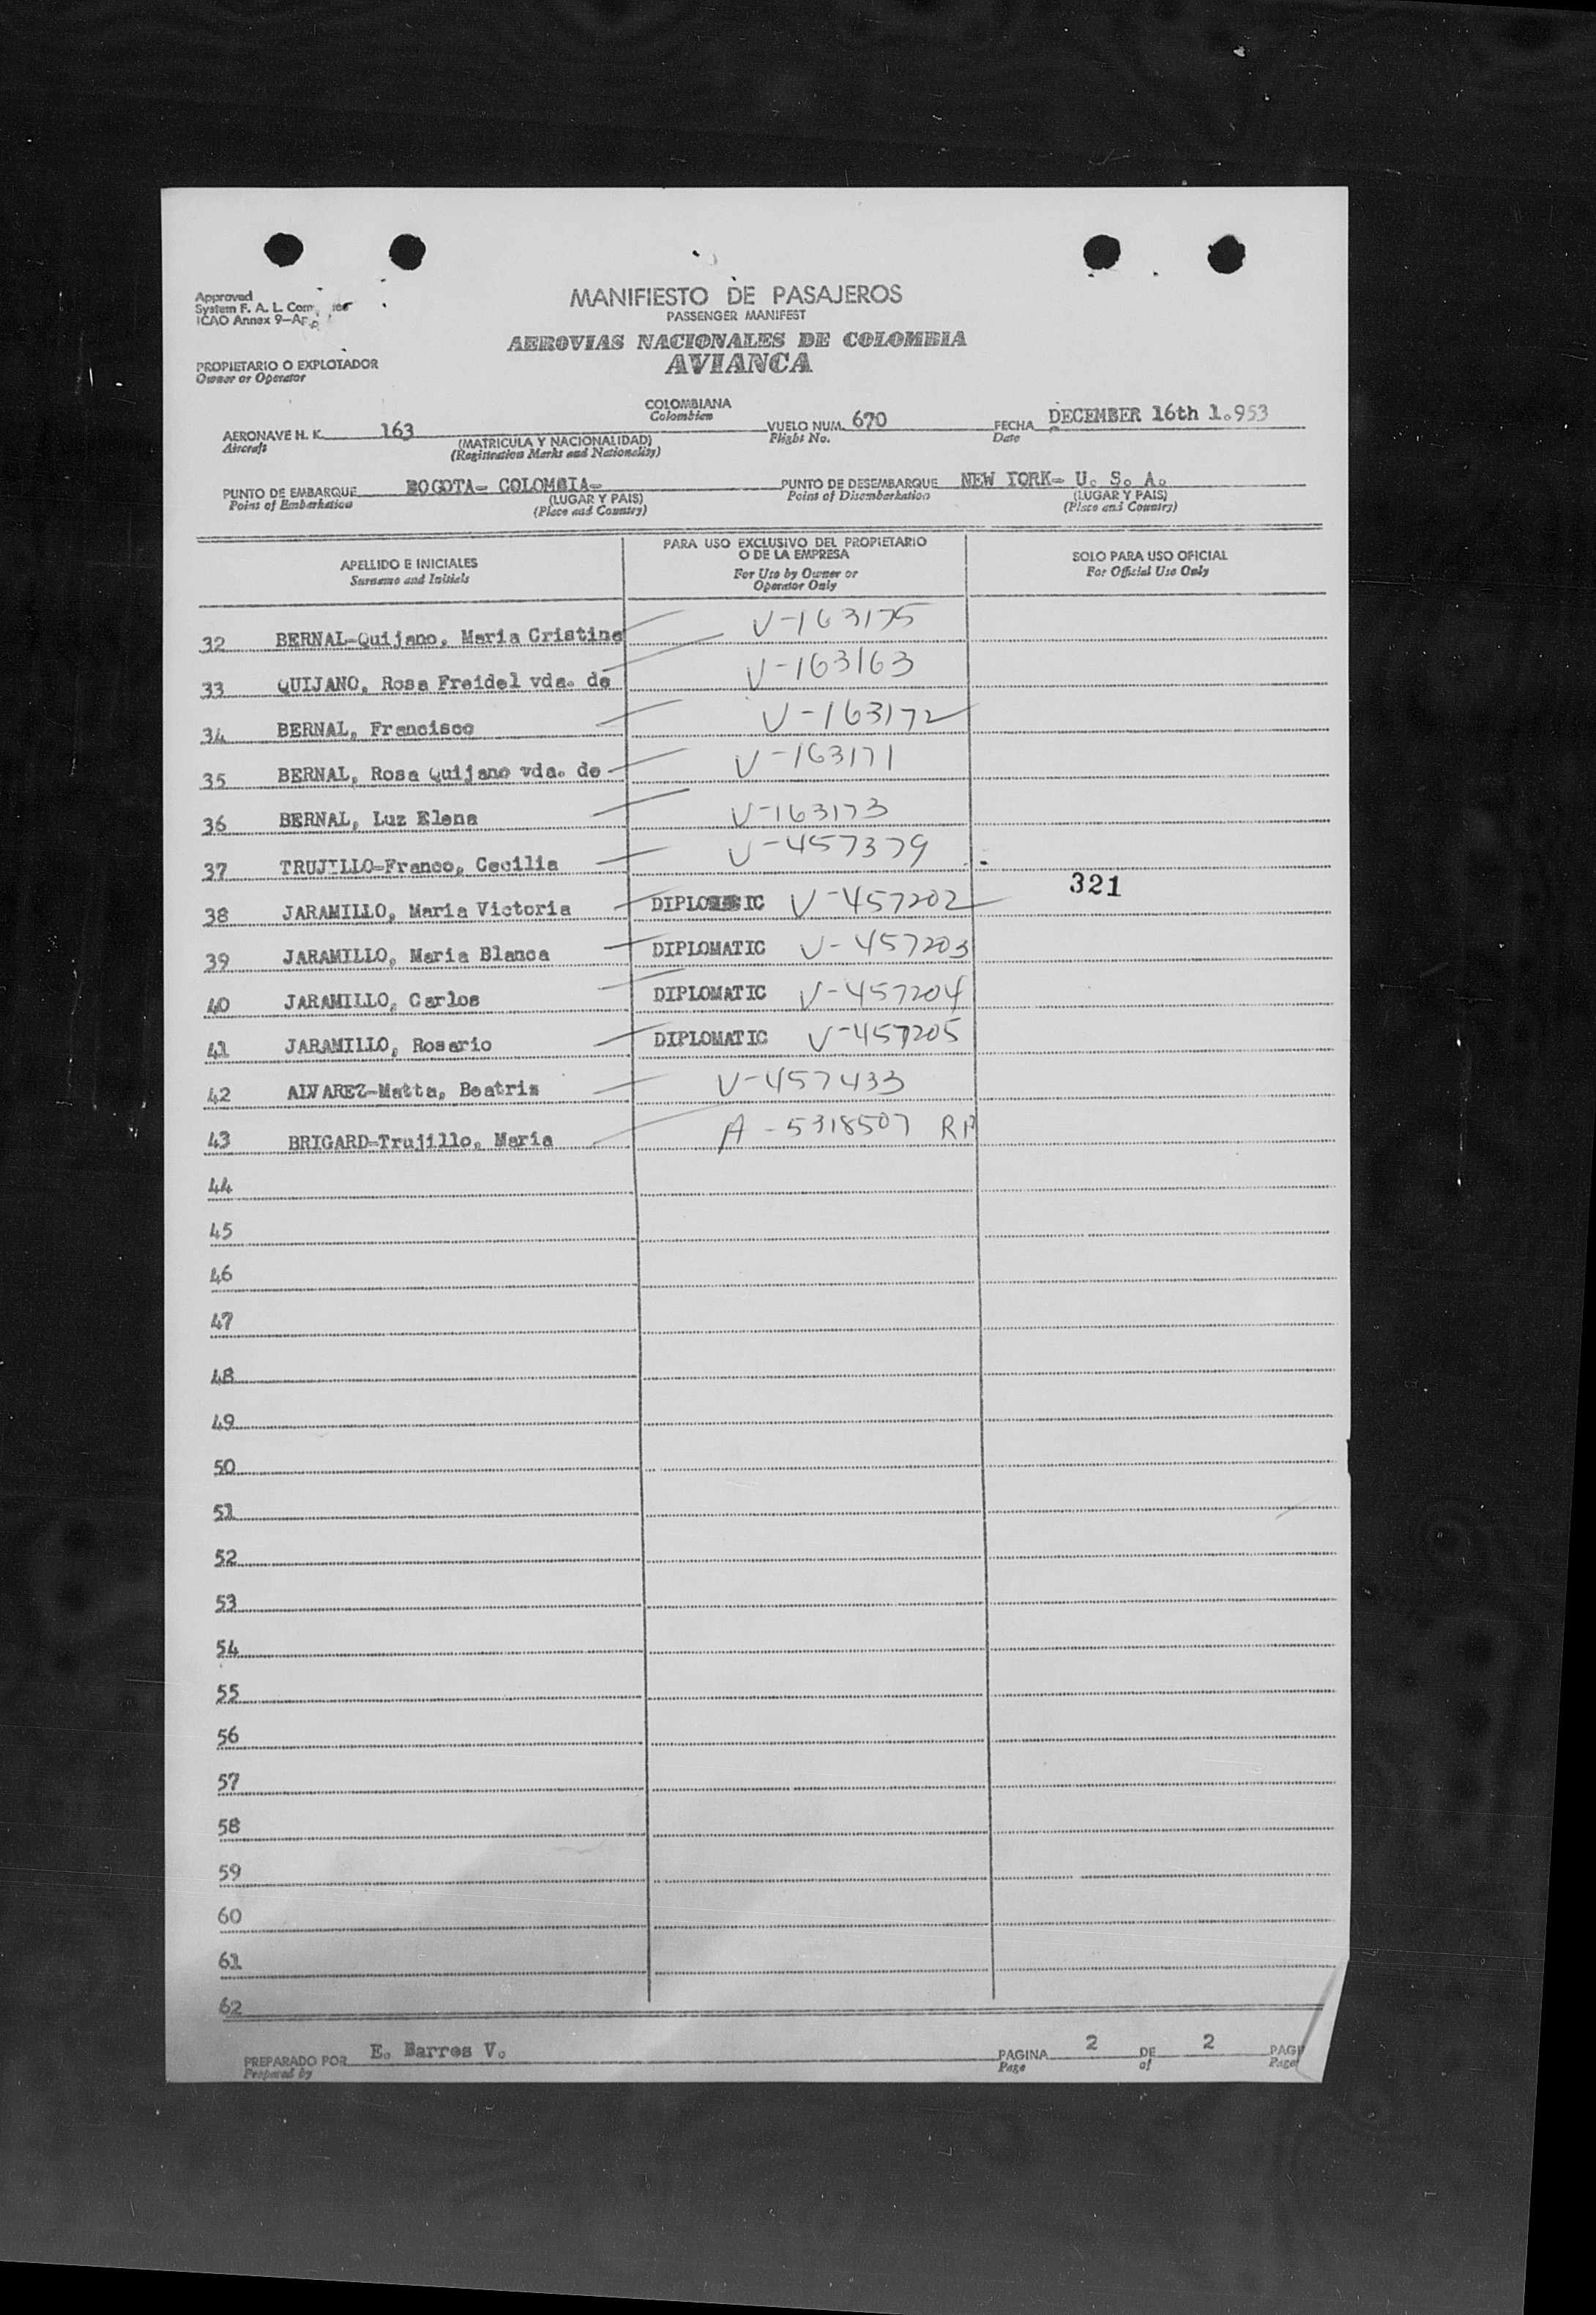 Approved
System F. A. L. Com
ICAO Annex 9-Ap
MANIFIESTO DE PASAJEROS
PASSENGER MANIFEST
AEROVIAS NACIONALES DE COLOMBIA
AVIANCA
PROPIETARIO O EXPLOTADOR
Owner or Operator
COLOMBIANA
Colombian
AERONAVE H. K. 163 (MATRICULA Y NACIONALIDAD) VUELO NUM. 670 FECHA DECEMBER 16th 1.953
Aircraft (Registration Marks and Nationality) Flight No. Date
PUNTO DE EMBARQUE BOGOTA- COLOMBIA- PUNTO DE DESEMBARQUE NEW YORK- U. S. A.
Point of Embarkation (LUGAR Y PAIS) Point of Disembarkation (LUGAR Y PAIS)
(Place and Country) (Place and Country)
APELLIDO E INICIALES
Surname and Initials
PARA USO EXCLUSIVO DEL PROPIETARIO
O DE LA EMPRESA
For Use by Owner or
Operator Only
SOLO PARA USO OFICIAL
For Official Use Only
32 BERNAL-Quijano, Maria Cristina V-163175
33 QUIJANO, Rosa Freidel vda. de V-163163
34 BERNAL, Francisco V-163172
35 BERNAL, Rosa Quijano vda. de V-163171
36 BERNAL, Luz Elena V-163173
37 TRUJILLO-Franco, Cecilia V-457379
321
38 JARAMILLO, Maria Victoria DIPLOMATIC V-457202
39 JARAMILLO, Maria Blanca DIPLOMATIC V-457203
40 JARAMILLO, Carlos DIPLOMATIC V-457204
41 JARAMILLO, Rosario DIPLOMATIC V-457205
42 ALVAREZ-Matta, Beatriz V-457433
43 BRIGARD-Trujillo, Maria A-5318507 RP
44
45
46
47
48
49
50
51
52
53
54
55
56
57
58
59
60
61
62
PREPARADO POR E. Barros V. PAGINA 2 DE 2 PAG
Prepared by Page of Page